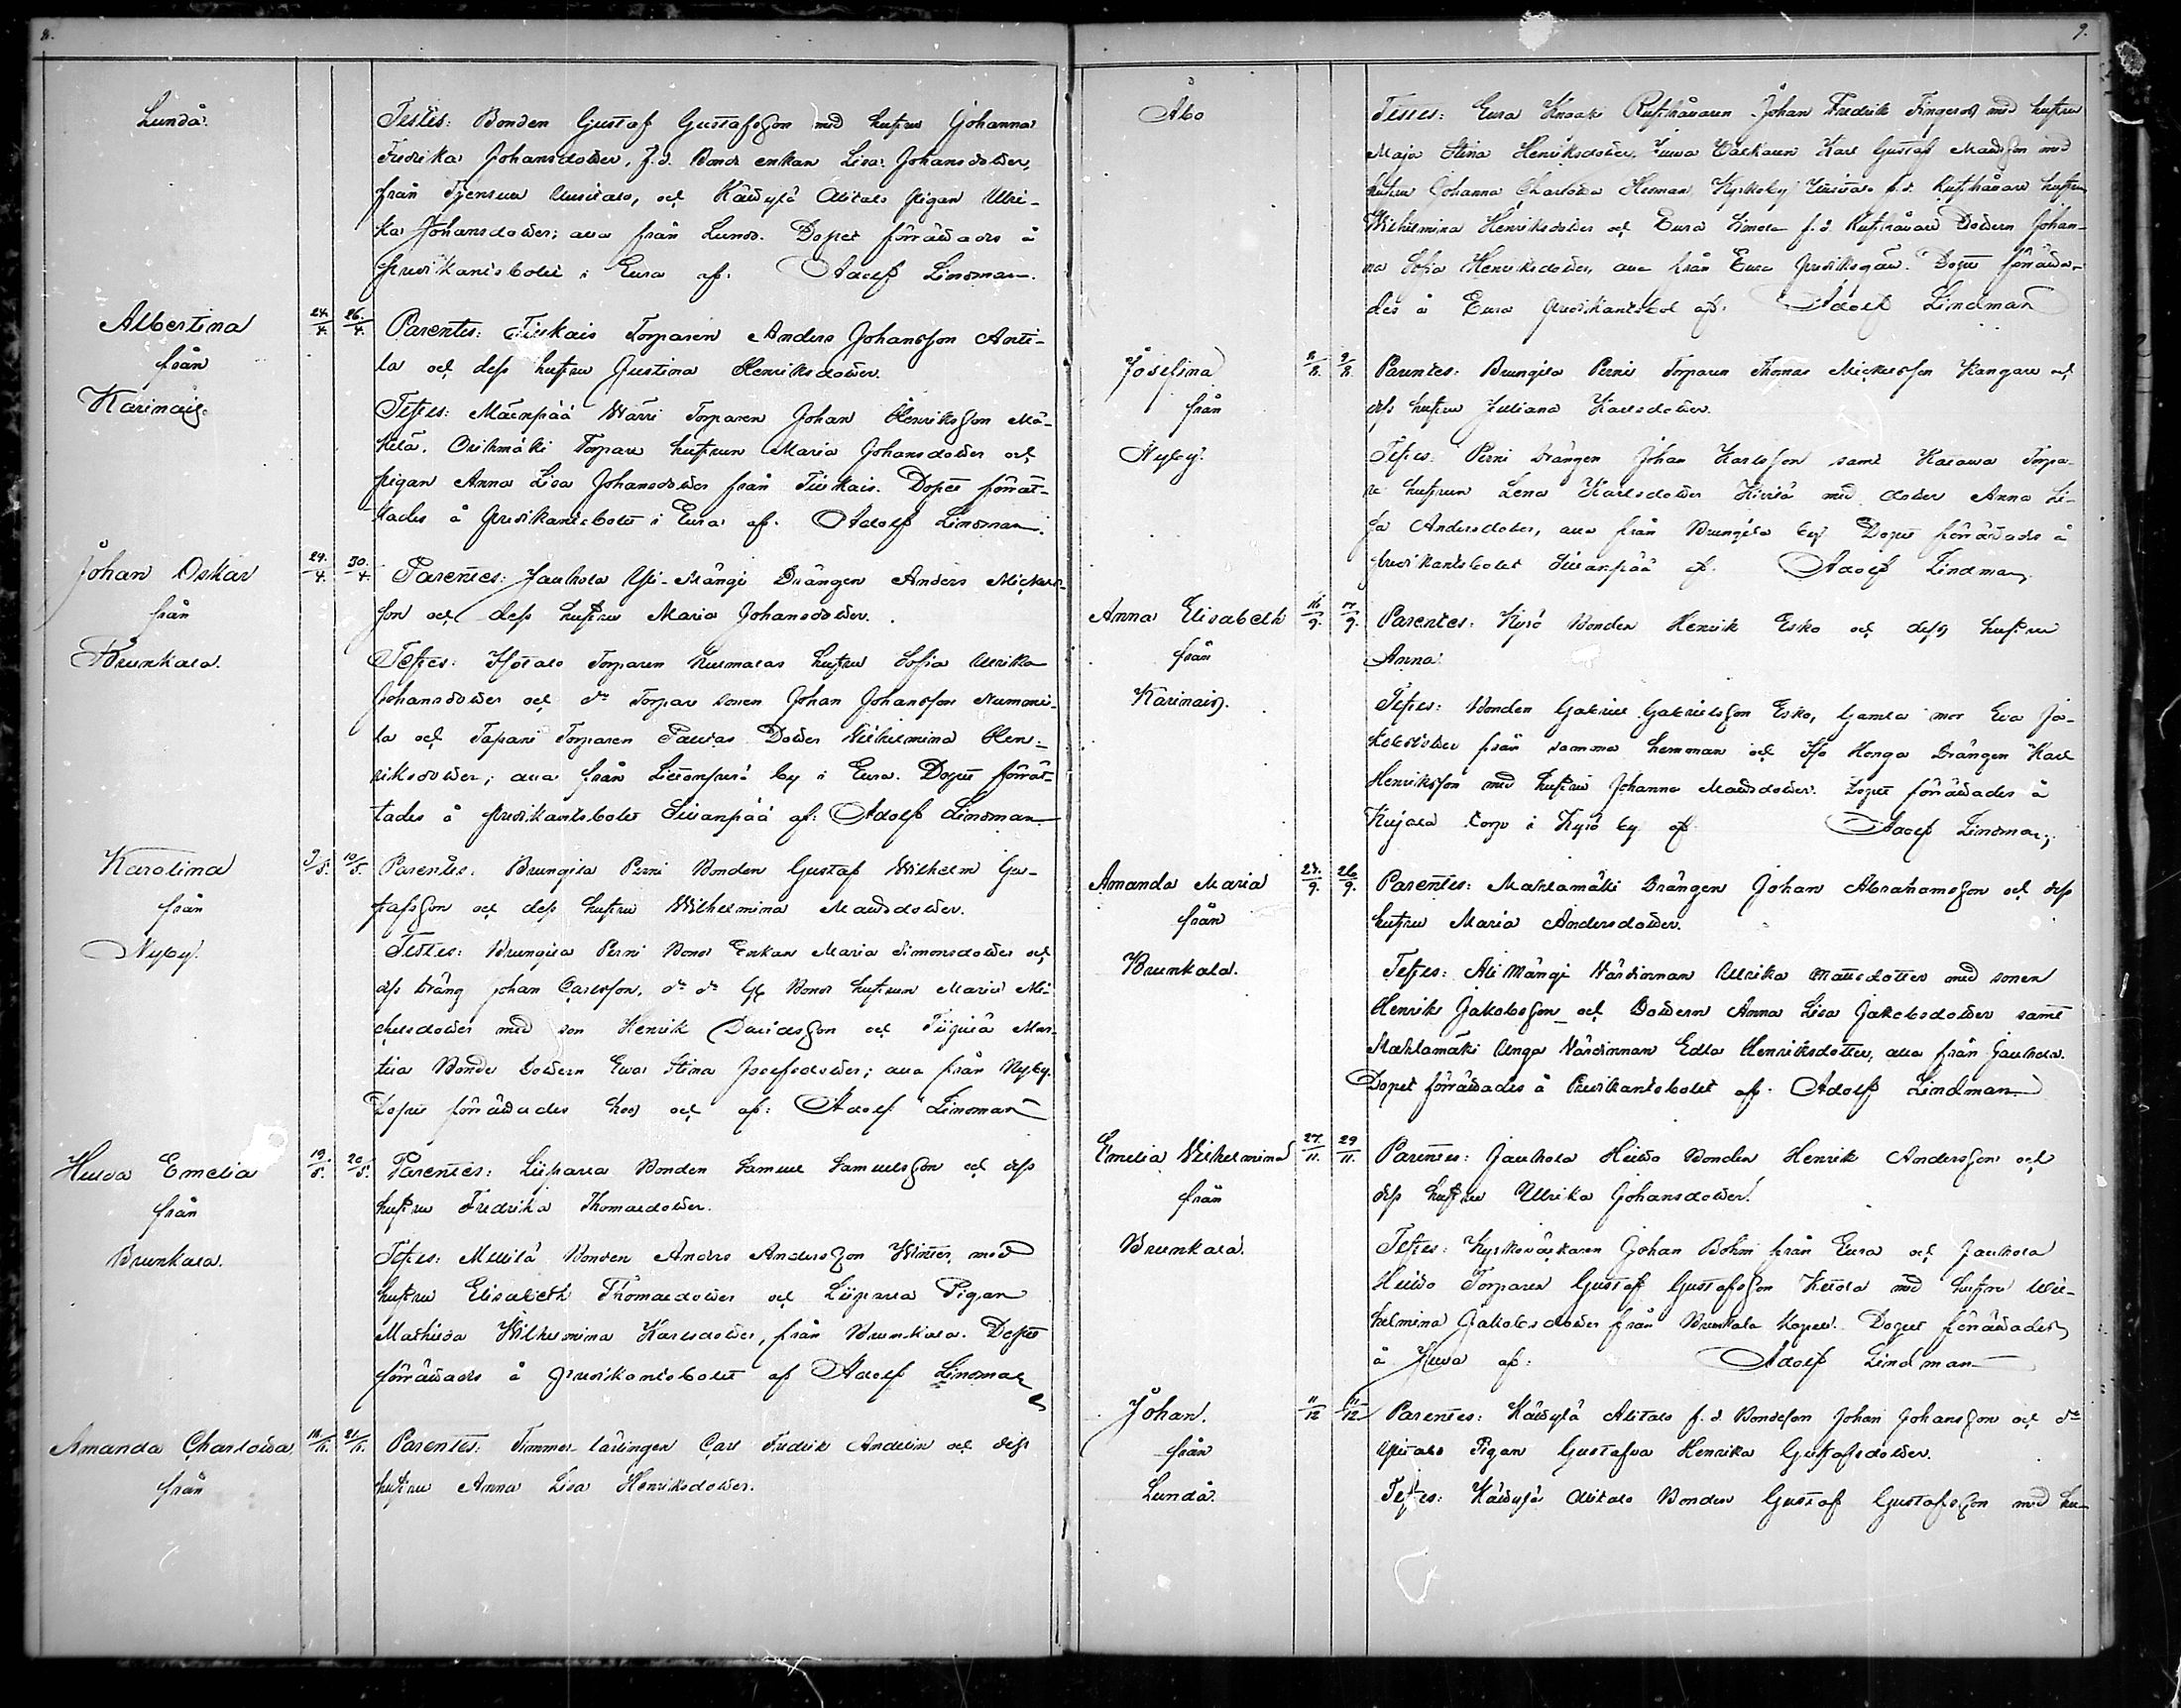 8.
Lundå.
Testes: Bonden Gustaf Gustafsson med hustru Johanna
Fredrika Johansdotter, f.d. Bonde enkan Lisa Johansdotter,
från Uusitalo, och Kättylä Alitalo pigan Ulri-
ka Johansdotter; alla från Lundå. Dopet förrättades å
predikantsbolet i Eura af: Adolf Lindman.
Albertina
från
Karinais.
24./4. 26./4.
Parentes: Tiskais Torparen Anders Johansson Antti-
la och dess hustru Justina Henriksdotter.
Testes: Mäenpää Wärri Torparen Johan Henriksson Mä-
kilä, Orihmäki Torpare hustrun Maria Johansdotter och
pigan Anna Lisa Johansdotter från Tiiskais. Dopet förrät-
tades å predikantsbolet i Eura af. Adolf Lindman.
Johan Oskar
från
Brunkala.
29./4. 30./4.
Parentes: Jauhola Yli-Mängi Drängen Anders Mickels-
son och dess hustru Maria Johansdotter.
Testes: Isotalo Torparen hustru Sofia Ulrika
Johansdotter och do Torpare sonen Johan Johansson Nummi-
la och Tapani Torparen Dotter Wilhelmina Hen-
riksdotter; alla från by i Eura. Dopet förrät-
tades å predikantsbolet Liuanpää af: Adolf Lindman
Karolina
från
Nyby.
9/5. 10/5.
Parentes. Brungila Perni Bonden Gustaf Wilhelm Gu-
stafsson och dess hustru Wilhelmina Mattsdotter.
Testes: Brungila Perni Bond Enkan Maria Simonsdotter och
dess dräng Johan Carlsson, do do Bonde hustrun Maria Mi-
chelsdotter med son Henrik Davidsson och Mar-
tila Bonde Dottern Eva Stina Josefsdotter; alla från Nyby.
Dopet förrättades hos och af: Adolf Lindman
Hulda Emelia
från
Brunkala.
19./5. 20/5.
Parentes: Liipala Bonden Samuel Samuelsson och dess
hustru Fredrika Thomasdotter.
Testes: Mellilä Bonden Anders Andersson Winter, med
hustru Elisabeth Thomasdotter och Liipala Pigan
Mathilda Wilhelmina Karlsdotter, från Brunkala. Dopet
förrättades å predikantsbolet af Adolf Lindman
Amanda Charlotta
från
18./6. 21./6.
Parentes: Timmer-lärlingen Carl Fredrik Andelin och dess
hustru Anna Lisa Henriksdotter.
9.
Åbo
Testes: Eura Knaaki Rusthållaren Johan Fredrik Fingerod med hustru
Maja Stina Henriksdotter, Karl Gustaf Mattsson med
hustru Johanna Charlotta Herman, Kyrkoby Uusitalo f.d. Rusthållare hustrun
Wilhelmina Henriksdotter och Eura Simola f.d. Rusthållare Dottern Johan-
na Sofia Henriksdotter, alla från Eura. Dopet förrätta-
des å Eura predikantsbol af: Adolf Lindman
Josefina
från
Nyby.
8/8. 9/8.
Parentes: Brungila Perni Torparen Thomas Mickelsson Kangare och
dess hustru Juliana Karlsdotter.
Testes: Perni Drängen Johan Karlsson samt Kasawa Torpa-
re hustrun Lena Karlsdotter med dotter Anna Li-
sa Andersdotter, alla från Brungila by. Dopet förrättades å
predikantsbolet Liuanpää af. Adolf Lindman.
Anna Elisabeth
från
Karinais.
16/9. 17/9.
Parentes: Kyrö Bonden Henrik Esko och dess hustru
Anna.
Testes: Bonden Gabriel Gabrielsson Esko, Gamla mor Eva Ja-
kobsdotter från samma hemman och Iso Honga Drängen Karl
Henriksson med hustru Johanna Mattsdotter. Dopet förrättades å
Kujala torp i Kyrö by af Adolf Lindman.
Amanda Maria
från
Brunkala.
23./9. 26/9.
Parentes: Mahlamäki Drängen Johan Abrahamsson och dess
hustru Maria Andersdotter.
Testes: Ali Mängi Värdinnan Ulrika Mattsdotter med sonen
Henrik Jakobsson och Dottern Anna Lisa Jakobsdotter samt
Mahlamäki Unga Värdinnan Edla Henriksdotter, alla från Jauhola.
Dopet förrättades å Predikantsbolet af. Adolf Lindman
Emelia Wilhelmina
från
Brunkala.
27./11. 29/11.
Parentes: Jauhola Heikko Bonden Henrik Andersson och
dess hustru Ulrika Johansdotter.
Testes: Kyrkoväktaren Johan Bohm från Eura och Jauhola
Torparen Gustaf Gustafsson Kettola med hustru Wil-
helmina Jakobsdotter från Brunkala Kapell. Dopet förrättades
å af: Adolf Lindman
Johan.
från
Lundå.
11/12 11/12
Parentes: Kättylä Alitalo f.d. Bondeson Johan Johansson och do
Ylitalo Pigan Gustafva Henrika Gustafsdotter.
Testes: Kättylä Alitalo Bonden Gustaf Gustafsson med hu-